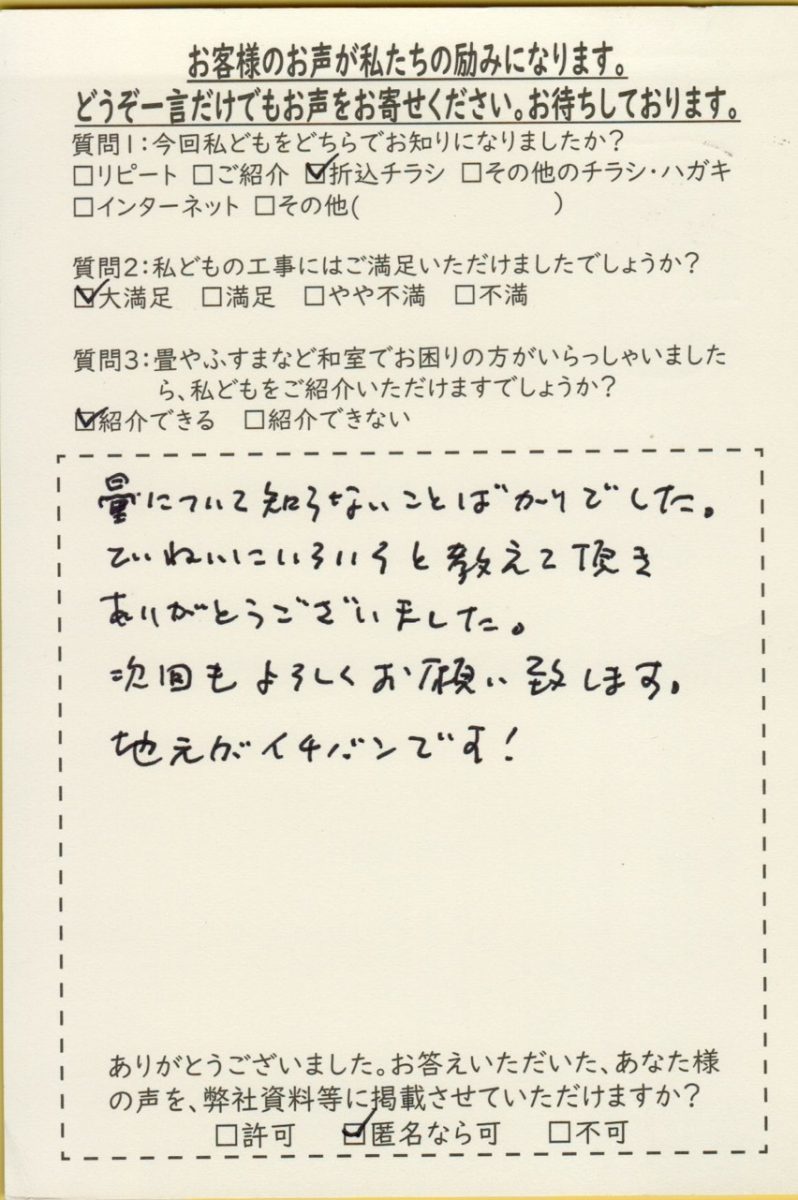 お客様のお声が私たちの励みになります。
どうぞ一言だけでもお声をお寄せください。お待ちしております。
質問1:今回私どもをどちらでお知りになりましたか?
□リピート □ご紹介 ☑折込チラシ □その他のチラシ・ハガキ
□インターネット □その他( )
質問2:私どもの工事にはご満足いただけましたでしょうか?
☑大満足 □満足 □やや不満 □不満
質問3:畳やふすまなど和室でお困りの方がいらっしゃいました
ら、私どもをご紹介いただけますでしょうか?
☑紹介できる □紹介できない
畳について知らないことばかりでした。
ていねいにいろいろと教えて頂き
ありがとうございました。
次回もよろしくお願い致します。
地元がイチバンです!
ありがとうございました。お答えいただいた、あなた様
の声を、弊社資料等に掲載させていただけますか?
□許可 ☑匿名なら可 □不可